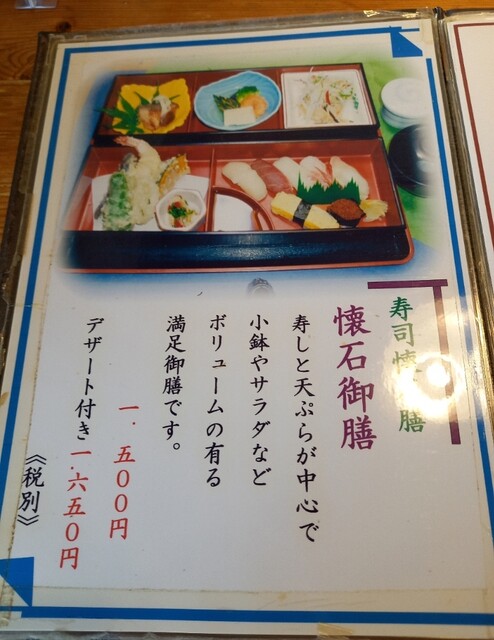 寿司懐石膳
懐石御膳
寿しと天ぷらが中心で
小鉢やサラダなど
ボリュームの有る
満足御膳です。
一.五〇〇円
デザート付き一.六五〇円
《税別》